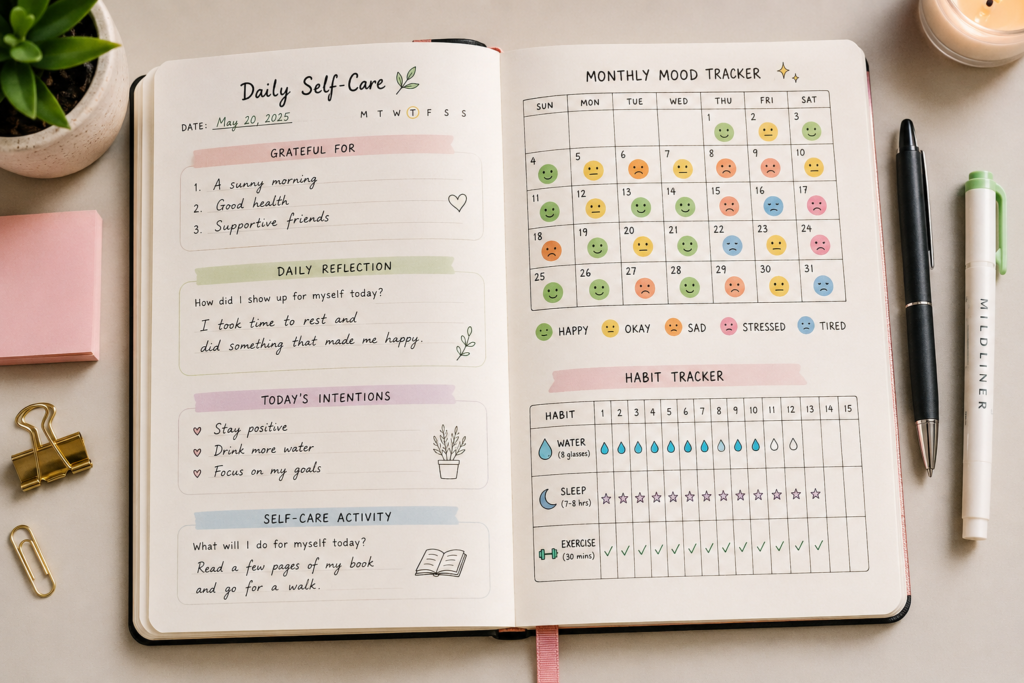 Daily Self-Care
DATE: May 20, 2025
M T W T F S S
GRATEFUL FOR
1. A sunny morning
2. Good health
3. Supportive friends
DAILY REFLECTION
How did I show up for myself today?
I took time to rest and
did something that made me happy.
TODAY'S INTENTIONS
Stay positive
Drink more water
Focus on my goals
SELF-CARE ACTIVITY
What will I do for myself today?
Read a few pages of my book
and go for a walk.
MONTHLY MOOD TRACKER
SUN MON TUE WED THU FRI SAT
1 2 3
4 5 6 7 8 9 10
11 12 13 14 15 16 17
18 19 20 21 22 23 24
25 26 27 28 29 30 31
HAPPY OKAY SAD STRESSED TIRED
HABIT TRACKER
HABIT 1 2 3 4 5 6 7 8 9 10 11 12 13 14 15
WATER
(8 glasses)
SLEEP
(7-8 hrs)
EXERCISE
(30 mins)
MILDLINER